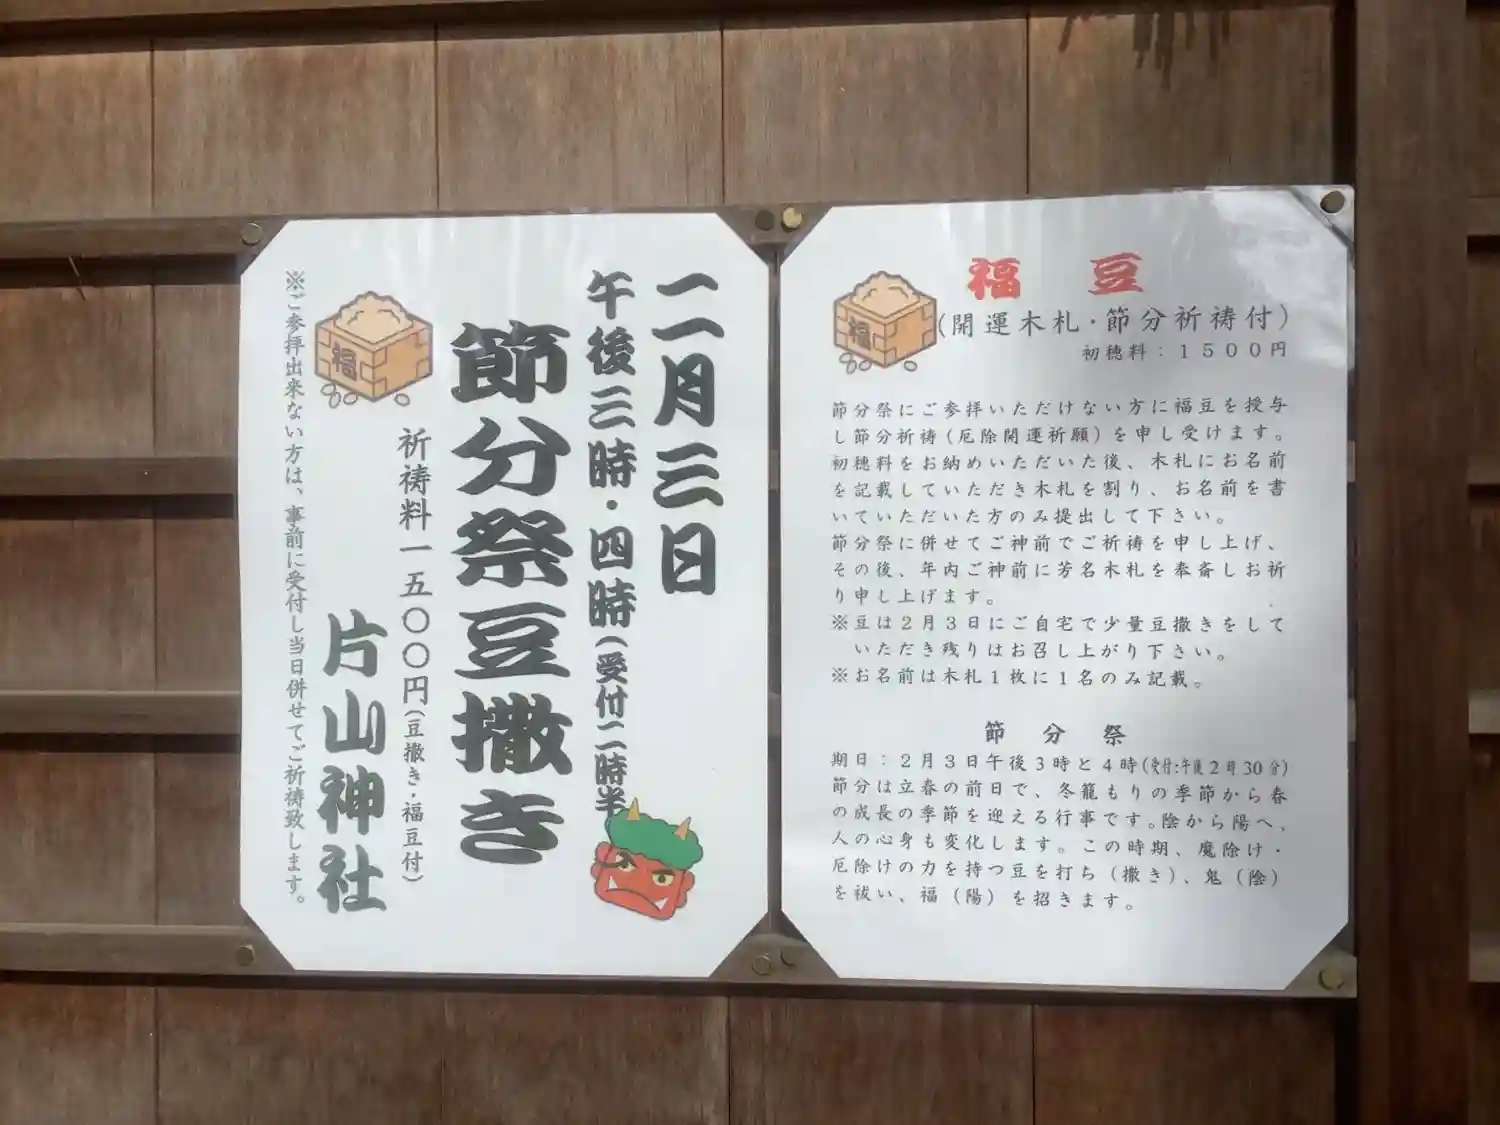 二月三日
午後三時・四時(受付二時半
節分祭豆撒き
祈祷料一五〇〇円(豆撒き・福豆付)
福
片山神社
※ご参拝出来ない方は、事前に受付し当日併せてご祈祷致します。
福豆
福
(開運木札・節分祈祷付)
初穂料：１５００円
節分祭にご参拝いただけない方に福豆を授与
し節分祈祷(厄除開運祈願)を申し受けます。
初穂料をお納めいただいた後、木札にお名前
を記載していただき木札を割り、お名前を書
いていただいた方のみ提出して下さい。
節分祭に併せてご神前でご祈祷を申し上げ、
その後、年内ご神前に芳名木札を奉斎しお祈
り申し上げます。
※豆は２月３日にご自宅で少量豆撒きをして
いただき残りはお召し上がり下さい。
※お名前は木札１枚に１名のみ記載。
節分祭
期日：２月３日午後３時と４時(受付:午後２時30分)
節分は立春の前日で、冬籠もりの季節から春
の成長の季節を迎える行事です。陰から陽へ、
人の心身も変化します。この時期、魔除け・
厄除けの力を持つ豆を打ち（撒き）、鬼（陰）
を祓い、福（陽）を招きます。